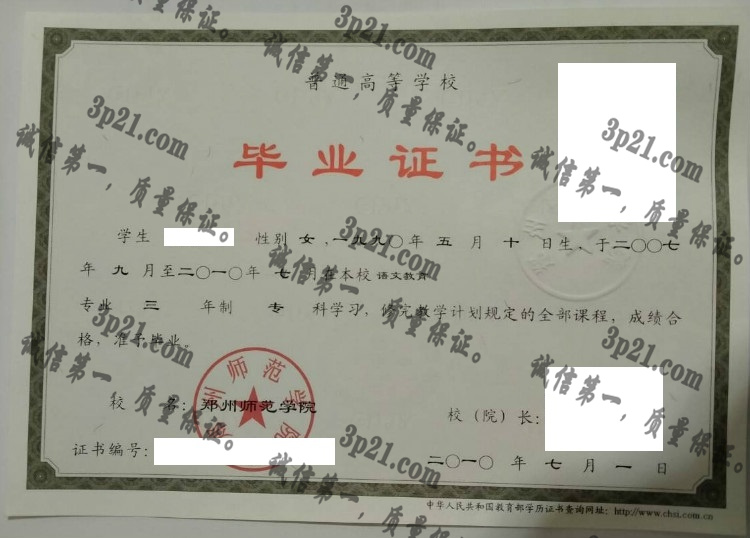 普通高等学校
毕业证书
学生 性别 女,一九九〇年 五 月 十 日生,于二〇〇七
年 九 月至二〇一〇年 七 月在本校 语文教育
专业 三 年制 专 科学习,修完教学计划规定的全部课程,成绩合
格,准予毕业。
校 名:郑州师范学院
校(院)长:
证书编号:
二〇一〇 年 七 月 一 日
中华人民共和国教育部学历证书查询网址:http://www.chsi.com.cn
3p21.com
诚信第一,质量保证。
3p21.com
诚信第一,质量保证。
3p21.com
诚信第一,质量保证。
3p21.com
诚信第一,质量保证。
3p21.com
诚信第一,质量保证。
3p21.com
诚信第一,质量保证。
3p21.com
诚信第一,质量保证。